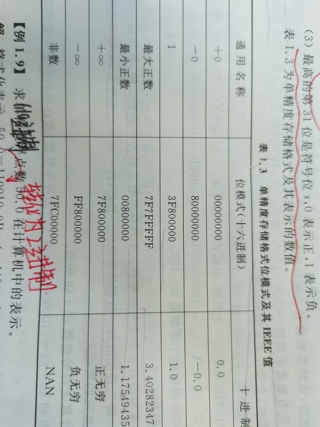 (3) 最高的第31位是符号位s,0表示正,1表示负。
表1.3为单精度存储格式及其表示的数值。
表1.3 单精度存储格式位模式及其IEEE值
通用名称 位模式(十六进制) 十进制
+0 00000000 0.0
-0 80000000 -0.0
1 3F800000 1.0
最大正数 7F7FFFFF 3.40282347
最小正数 00800000 1.17549435
+∞ 7F800000 正无穷
-∞ FF800000 负无穷
非数 7FC00000 NAN
10进制
换为2进制
【例1.9】 求 点数50.0在计算机中的表示。